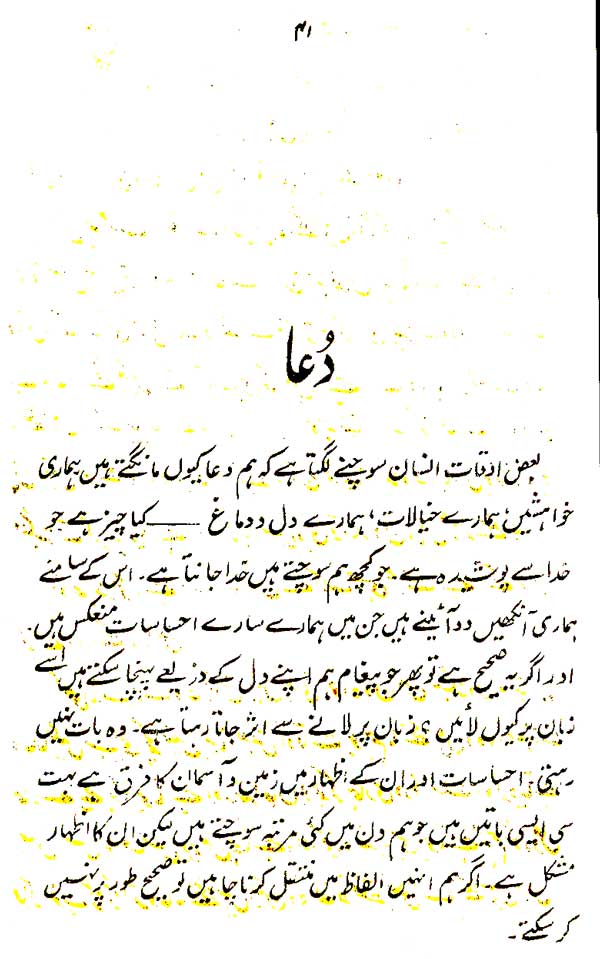 ۴۱
دُعا
بعض اوقات انسان سوچنے لگتا ہے کہ ہم دعا کیوں مانگتے ہیں ہماری
خواہشیں، ہمارے خیالات، ہمارے دل و دماغ ـــــ کیا چیز ہے جو
خدا سے پوشیدہ ہے۔ جو کچھ ہم سوچتے ہیں خدا جانتا ہے۔ اس کے سامنے
ہماری آنکھیں دو آئینے ہیں جن میں ہمارے سارے احساسات منعکس ہیں۔
اور اگر یہ صحیح ہے تو پھر جو پیغام ہم اپنے دل کے ذریعے پہنچا سکتے ہیں اسے
زبان پر کیوں لائیں؟ زبان پر لانے سے اثر جاتا رہتا ہے۔ وہ بات نہیں
رہتی۔ احساسات اور ان کے اظہار میں زمین و آسمان کا فرق ہے بہت
سی ایسی باتیں ہیں جو ہم دن میں کئی مرتبہ سوچتے ہیں لیکن ان کا اظہار
مشکل ہے۔ اگر ہم انہیں الفاظ میں منتقل کرنا چاہیں تو صحیح طور پر نہیں
کر سکتے۔